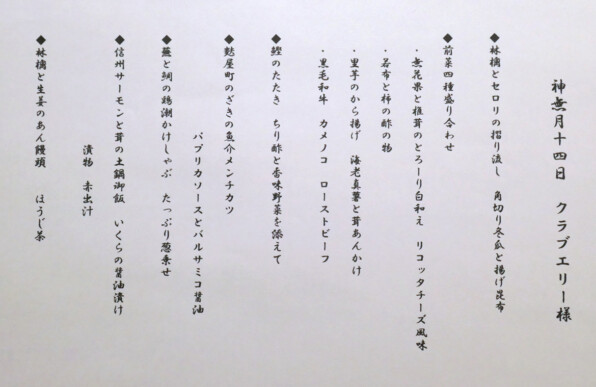 神無月十四日　クラブエリー様
◆林檎とセロリの摺り流し　角切り冬瓜と揚げ昆布
◆前菜四種盛り合わせ
・無花果と椎茸のとろーり白和え　リコッタチーズ風味
・若布と柿の酢の物
・里芋のから揚げ　海老真薯と茸あんかけ
・黒毛和牛　カメノコ　ローストビーフ
◆鰹のたたき　ちり酢と香味野菜を添えて
◆麩屋町のざきの魚介メンチカツ
パプリカソースとバルサミコ醤油
◆蕪と鯛の鶏潮かけしゃぶ　たっぷり葱乗せ
◆信州サーモンと茸の土鍋御飯　いくらの醤油漬け
漬物　赤出汁
◆林檎と生姜のあん饅頭　ほうじ茶